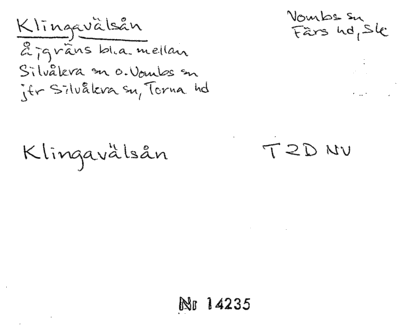 Klingavälsån
Vombs sn
Färs hd, Ske
å; gräns bl.a. mellan
Silvåkra sn o. Vombs sn
jfr Silvåkra sn, Torna hd
Klingavälsån
T 2D NV
Nr 14235